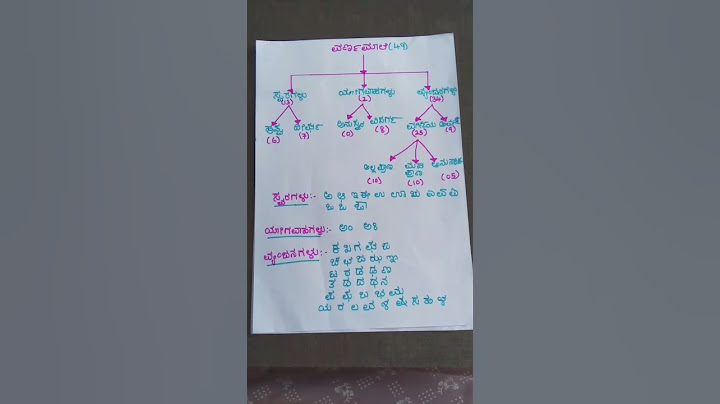 ವರ್ಣಮಾಲೆ (49)
ಸ್ವರಗಳು ಯೋಗವಾಹಗಳು ವ್ಯಂಜನಗಳು
(13) (2) (34)
ಹ್ರಸ್ವ ದೀರ್ಘ ಅನುಸ್ವರ ವಿಸರ್ಗ ವರ್ಗೀಯ ಅವರ್ಗೀಯ
(6) (7) (0) (8) (25) (9)
ಅಲ್ಪಪ್ರಾಣ ಮಹಾ ಅನುನಾಸಿಕ
ಪ್ರಾಣ
(10) (10) (05)
ಸ್ವರಗಳು:- ಅ ಆ ಇ ಈ ಉ ಊ ಋ ಎ ಏ ಐ
ಒ ಓ ಔ
ಯೋಗವಾಹಗಳು:- ಅಂ ಅಃ
ವ್ಯಂಜನಗಳು:- ಕ ಖ ಗ ಘ ಙ
ಚ ಛ ಜ ಝ ಞ
ಟ ಠ ಡ ಢ ಣ
ತ ಥ ದ ಧ ನ
ಪ ಫ ಬ ಭ ಮ
ಯ ರ ಲ ವ ಶ ಷ ಸ ಹ ಳ